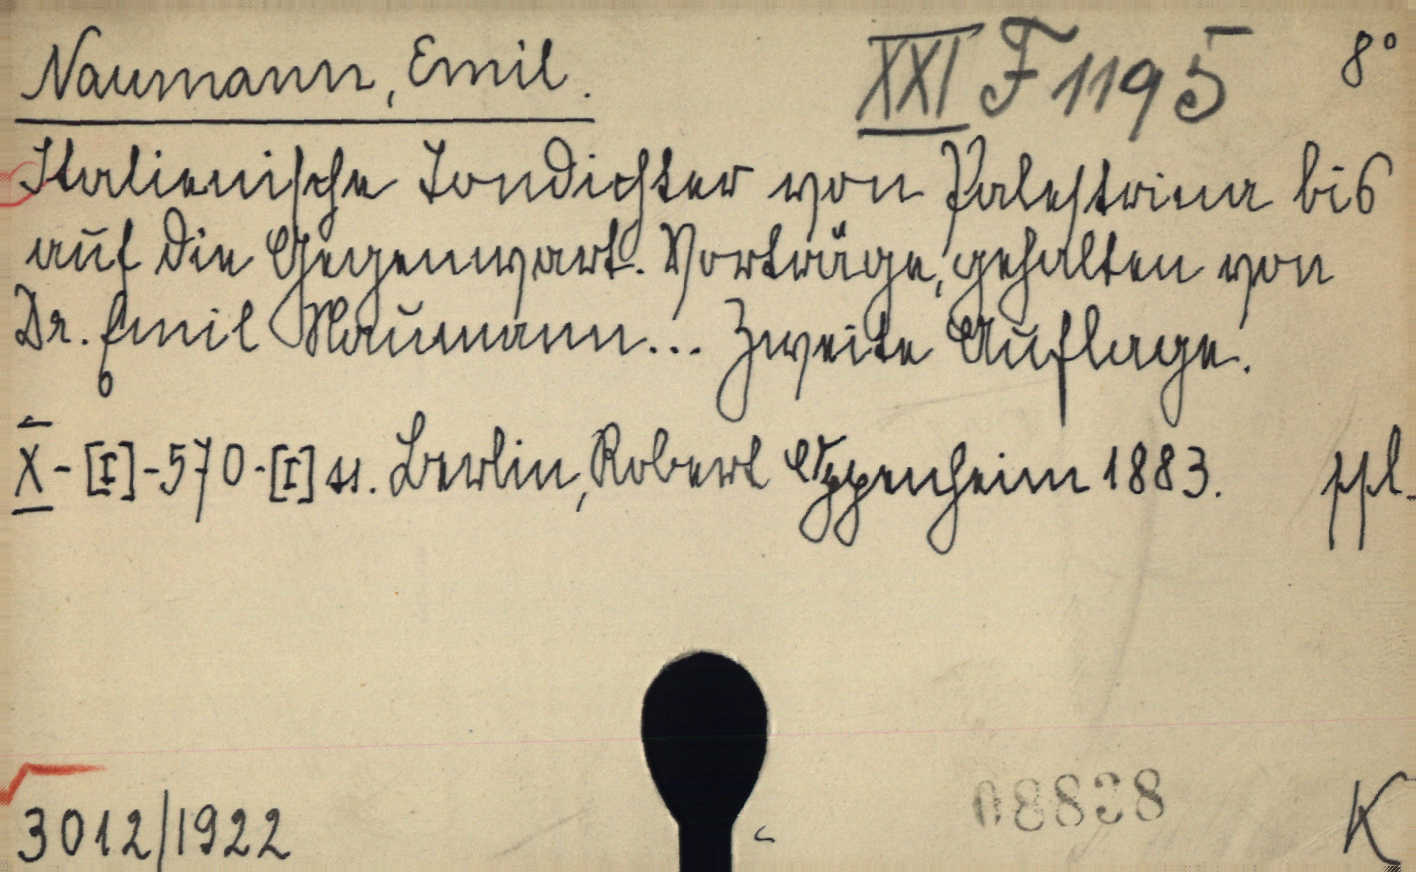 Naumann, Emil. XXI F 1195 8°
Italienische Tondichter von Palestrina bis
auf die Gegenwart. Vorträge, gehalten von
Dr. Emil Naumann... Zweite Auflage.
X-[I]-570-[I] ss. Berlin, Robert Oppenheim 1883. ppl.
08838
3012/1922 K